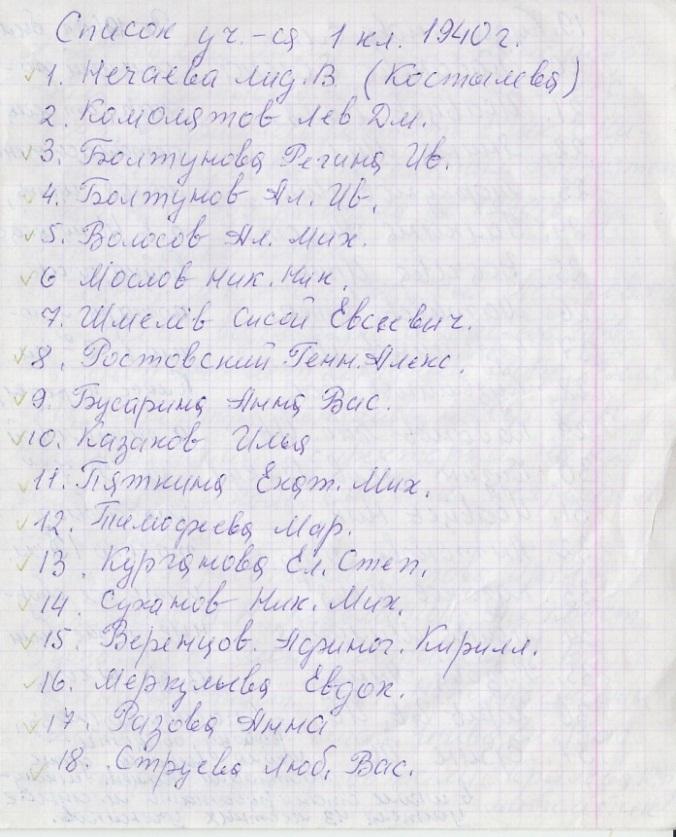 Список уч.-ся 1 кл. 1940г.
1. Нечаева Лид. В (Костылева)
2. Комолятов Лев Дм.
3. Болтунова Регина Ив.
4. Болтунов Ал. Ив.
5. Волосов Ал. Мих.
6 Мослов Ник. Ник.
7. Шмелёв Сисой Евсеевич.
8. Ростовский Генн. Алекс.
9. Бусарина Анна Вас.
10. Казаков Илья
11. Пяткина Екат. Мих.
12. Тимофеева Мар.
13. Курганова Ел. Степ.
14. Суханов Ник. Мих.
15. Веренцов. Кирилл.
16. Меркульева Евдок.
17. Разова Анна
18. Струева Люб. Вас.